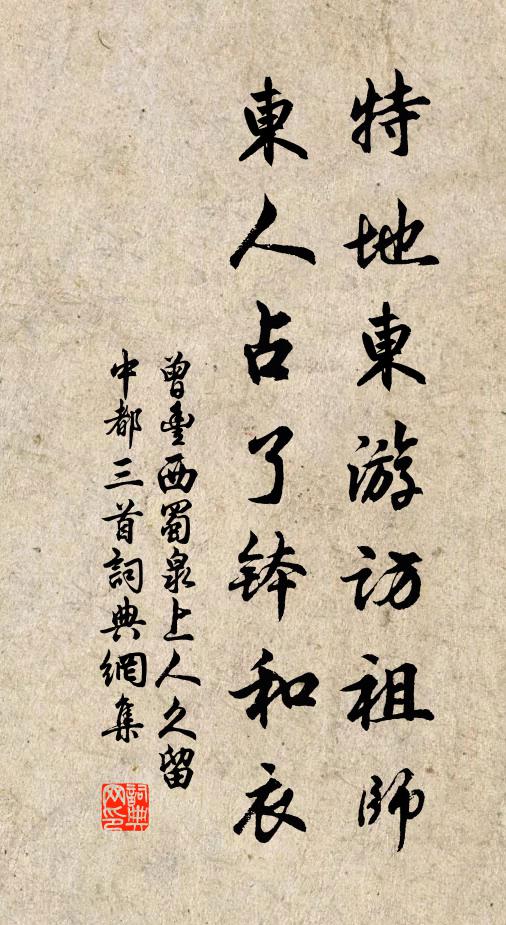 特地東游訪祖師
東人占了鉢和衣
曾豐西蜀泉上人久留
中都三首詞典網集
詞典網印